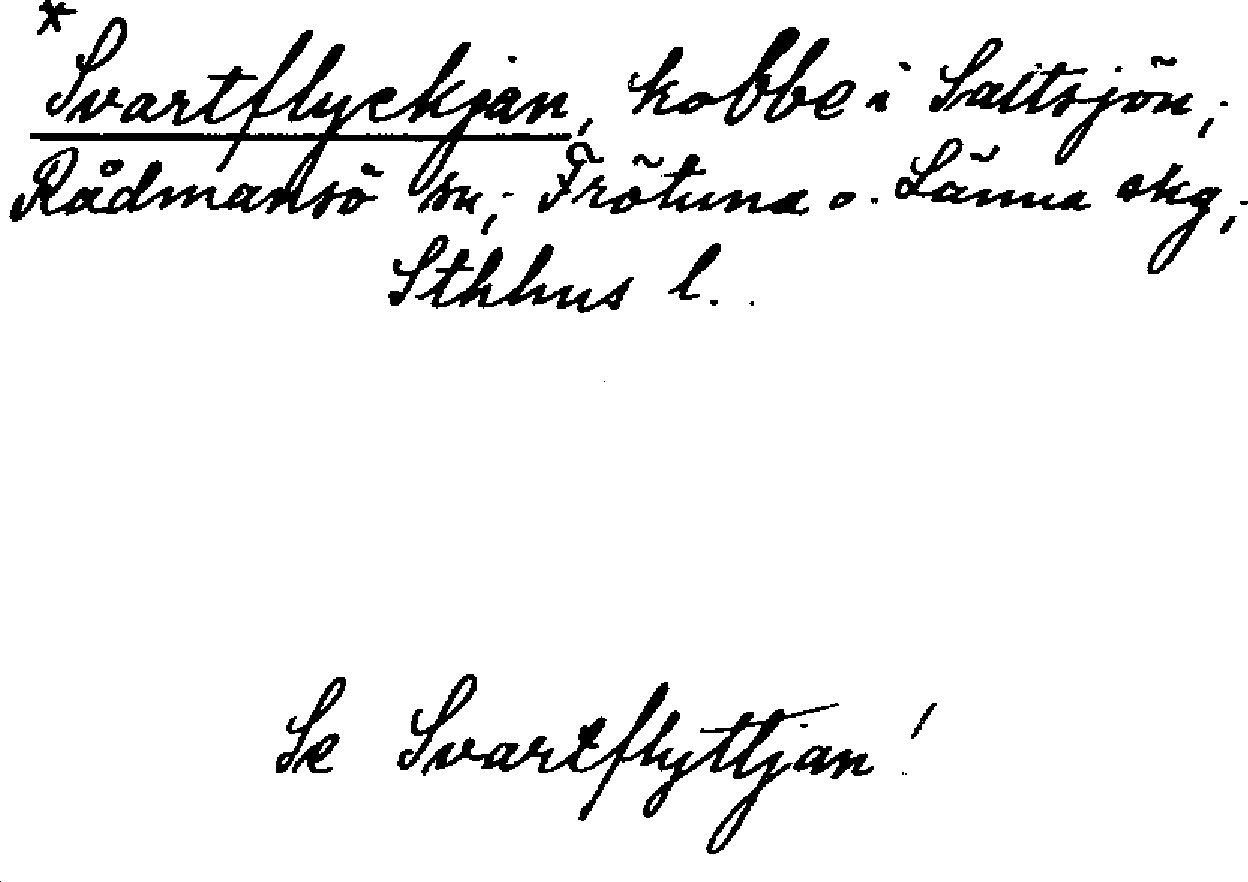 *
Svartflyckjan, kobbe i Saltsjön;
Rådmansö sn; Frötuna o. Länna skg;
Sthhus l.
Se Svartflyttjan!